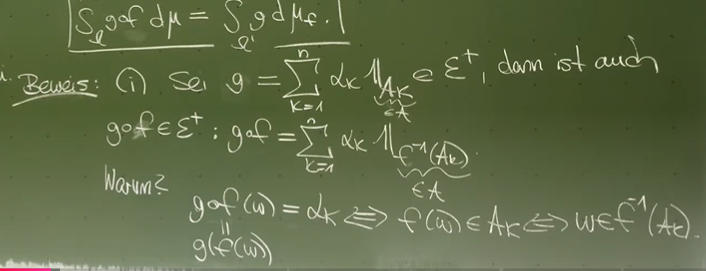 ∫_Ω g∘f dμ = ∫_Ω' g dμ_f.
Beweis: (i) Sei g = ∑_{k=1}^{n} α_k 𝟙_{A_k} ∈ ℰ⁺, dann ist auch
∈ A
g∘f ∈ ℰ⁺ ; g∘f = ∑_{k=1}^{n} α_k 𝟙_{f⁻¹(A_k)}.
∈ A
Warum?
g∘f(ω) = α_k ⇔ f(ω) ∈ A_k ⇔ ω ∈ f⁻¹(A_k).
=
g(f(ω))